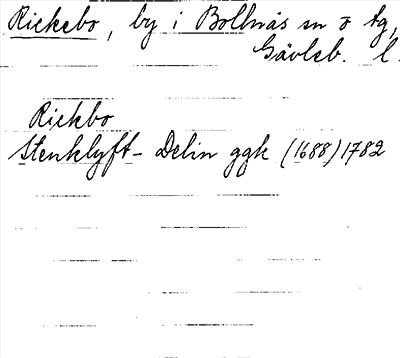 Rickebo, by i Bollnäs sn o tg,
Gävleb. l.
Rickbo
Stenklyft - Delin ggk (1688) 1782